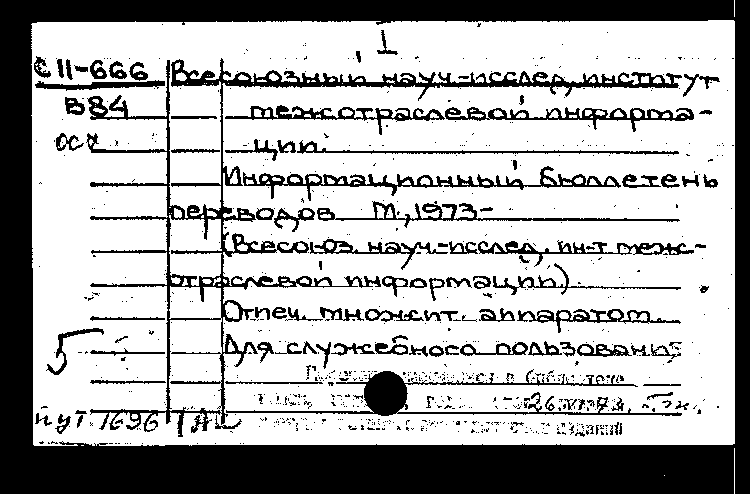 I
С11-666 Всесоюзный науч.-исслед. институт
В84 межотраслевой информа-
ции.
Информационный бюллетень
переводов М., 1973-
(Всесоюз. науч.-исслед. ин-т меж-
отраслевой информации).
Отпеч. множит. аппаратом.
Для служебного пользования
5
в библиотеке
изданий
нут 1696